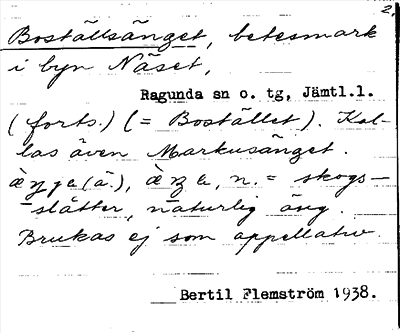 2.
Boställsänget, betesmark
i byn Näset,
Ragunda sn o. tg, Jämtl.l.
(forts.) (= Bostället). Kal-
las även Markusänget.
(ä.), n. = skogs-
slåtter, naturlig äng.
Brukas ej som appellativ.
Bertil Flemström 1938.